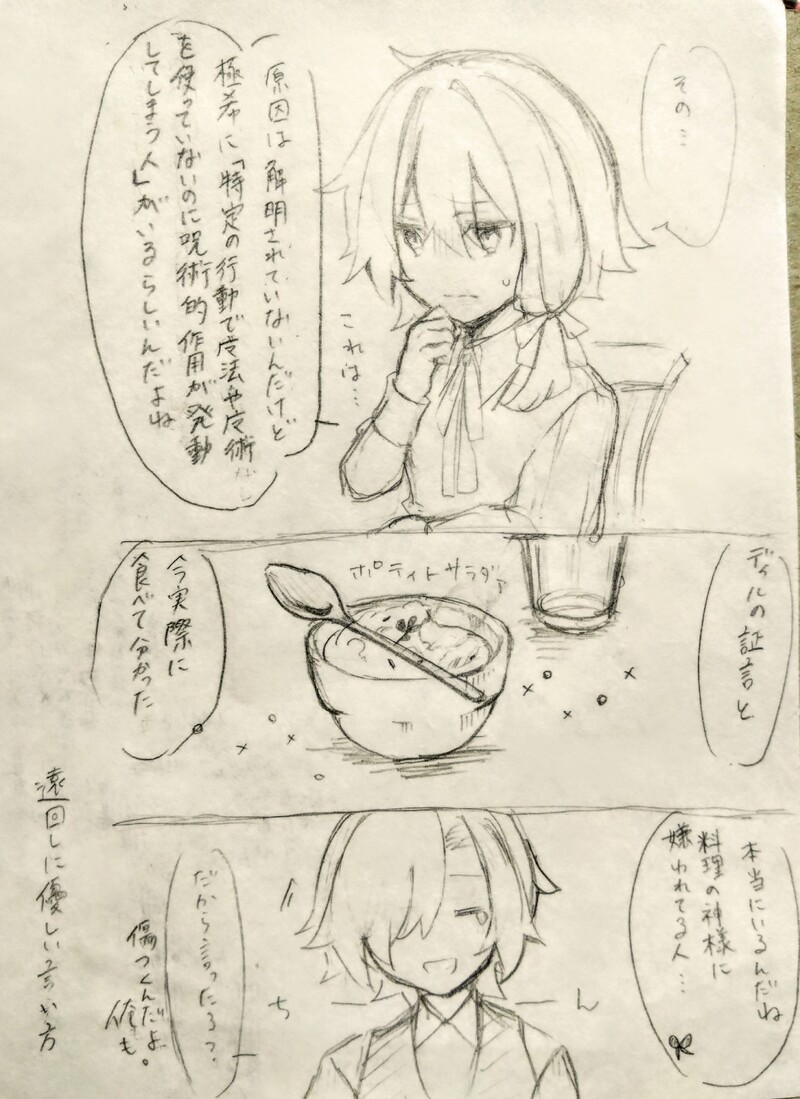 その…
原因は解明されていないんだけど
極希に「特定の行動で皮法や皮術
を使っていないのに呪術的作用が発動
してしまう人」がいるらしいんだよね
これは…
ディルの証言と
ポティトサラダァ
今実際に
食べて分かった
本当にいるんだね
料理の神様に
嫌われてる人…
ちーん
だから言ったろっ.
傷つくんだよ
俺も。
遠回しに優しい言い方